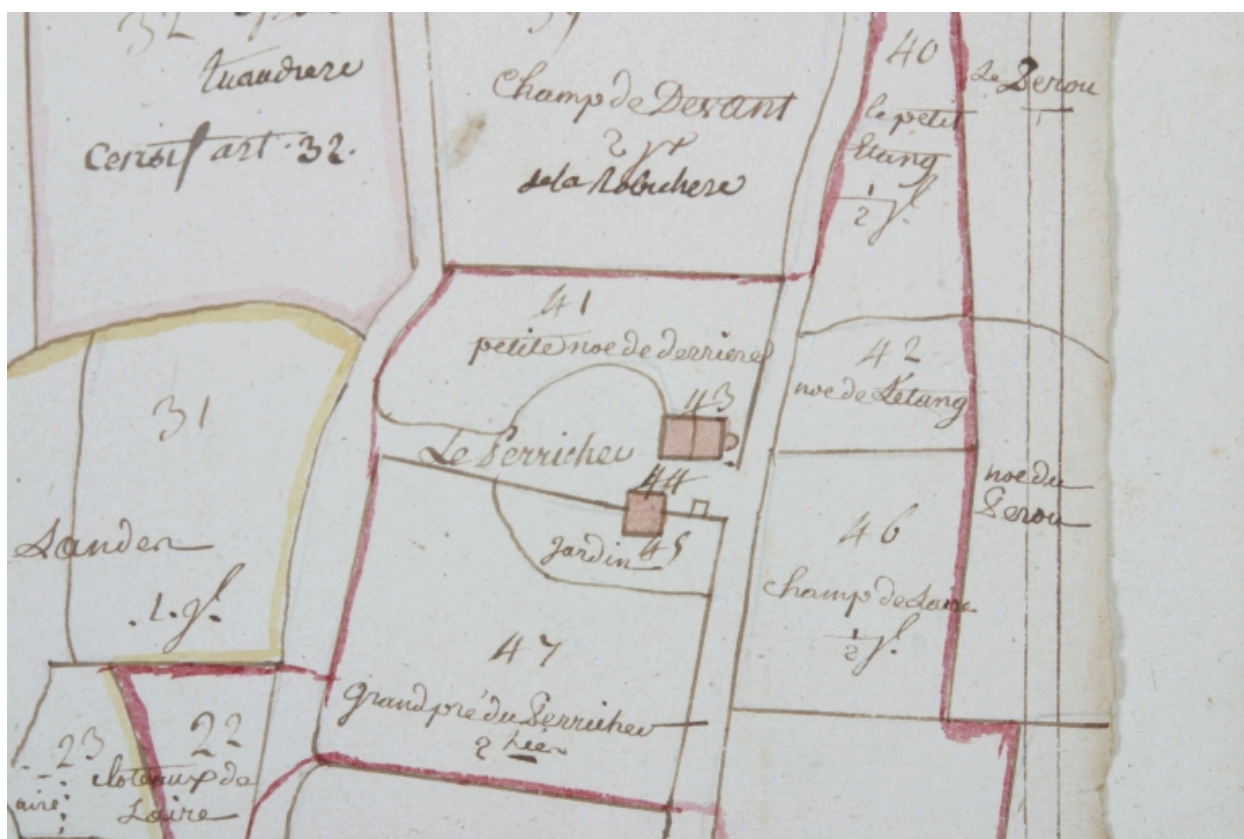 32
Censif art. 32.
39
Champ de Devant
2 jx
de la Robichere
40
le petit
Etang
1/2 jl.
Le Perou
41
petite noe de derriere
42
noe de L'etang
43
Le Perricher
44
Jardin 45
31
Landes
1. jl.
noe du
Perou
46
Champ de Laire
1/2 jl.
47
Grand pré du Perricher
2
23
aire
22
cloteaux de
Loire